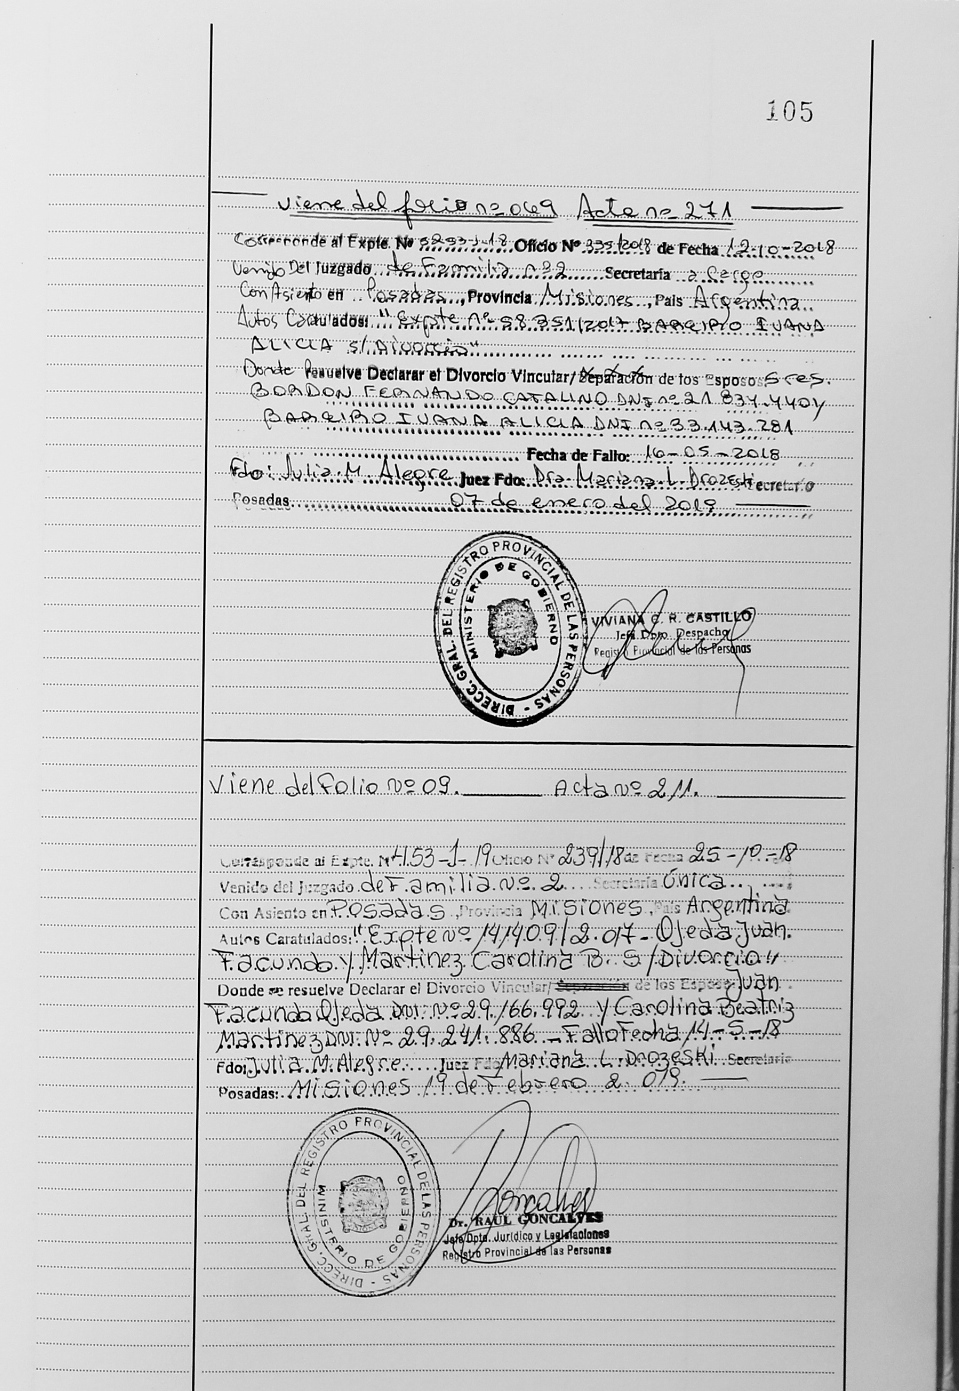 105
Viene del folio nº 069 Acta nº 271
Corresponde al Expte. Nº 5293-J-18 Oficio Nº 335/2018 de Fecha 12-10-2018
Venido Del Juzgado de Familia nº 2 Secretaría a Cargo
Con Asiento en Posadas, Provincia Misiones, Pais Argentina
Autos Caratulados: "Expte nº 58.351/2017 BARREIRO IVANA
ALICIA s/Divorcio"
Donde Resuelve Declarar el Divorcio Vincular/Separación de los Esposos Sres.
BORDON FERNANDO CATALINO DNI nº 21.834.440 y
BARREIRO IVANA ALICIA DNI nº 33.143.281
Fecha de Fallo: 16-05-2018
Fdo: Julia M. Alegre Juez Fdo: Dra. Mariana L. Drozeski Secretario
Posadas 07 de enero del 2019
DIRECC. GRAL. DEL REGISTRO PROVINCIAL DE LAS PERSONAS
MINISTERIO DE GOBIERNO
VIVIANA C. R. CASTILLO
Jefa Dpto. Despacho
Registro Provincial de las Personas
Viene del Folio Nº 09. Acta Nº 211.
Corresponde al Expte. Nº 4153-J-19 Oficio Nº 239/18 de Fecha 25-10-18
Venido del Juzgado de Familia Nº 2 Secretaría Única
Con Asiento en Posadas, Provincia Misiones, Pais Argentina
Autos Caratulados: "Expte Nº 141409/2.017- Ojeda Juan
Facundo y Martinez Carolina B. S/Divorcio"
Donde se resuelve Declarar el Divorcio Vincular/Separación de los Esposos Juan
Facundo Ojeda DNI. Nº 29.166.992 y Carolina Beatriz
Martinez DNI. Nº 29.241.886 - Fallo Fecha 14-5-18
Fdo: Julia M. Alegre. Juez Fdo Mariana L. Drozeski Secretaria
Posadas: Misiones 19 de Febrero 2.019.
DIRECC. GRAL. DEL REGISTRO PROVINCIAL DE LAS PERSONAS
MINISTERIO DE GOBIERNO
Dr. RAUL GONCALVES
Jefe Dpto. Jurídico y Legislaciones
Registro Provincial de las Personas